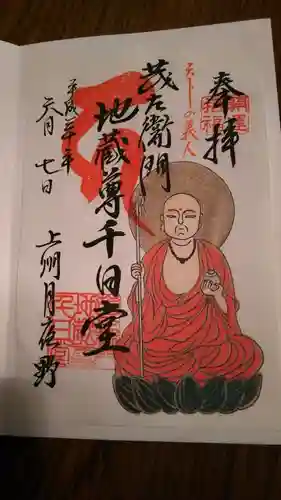 奉拝
天下の義人
茂左衛門
地蔵尊千日堂
平成三十年
六月七日
上州月夜野